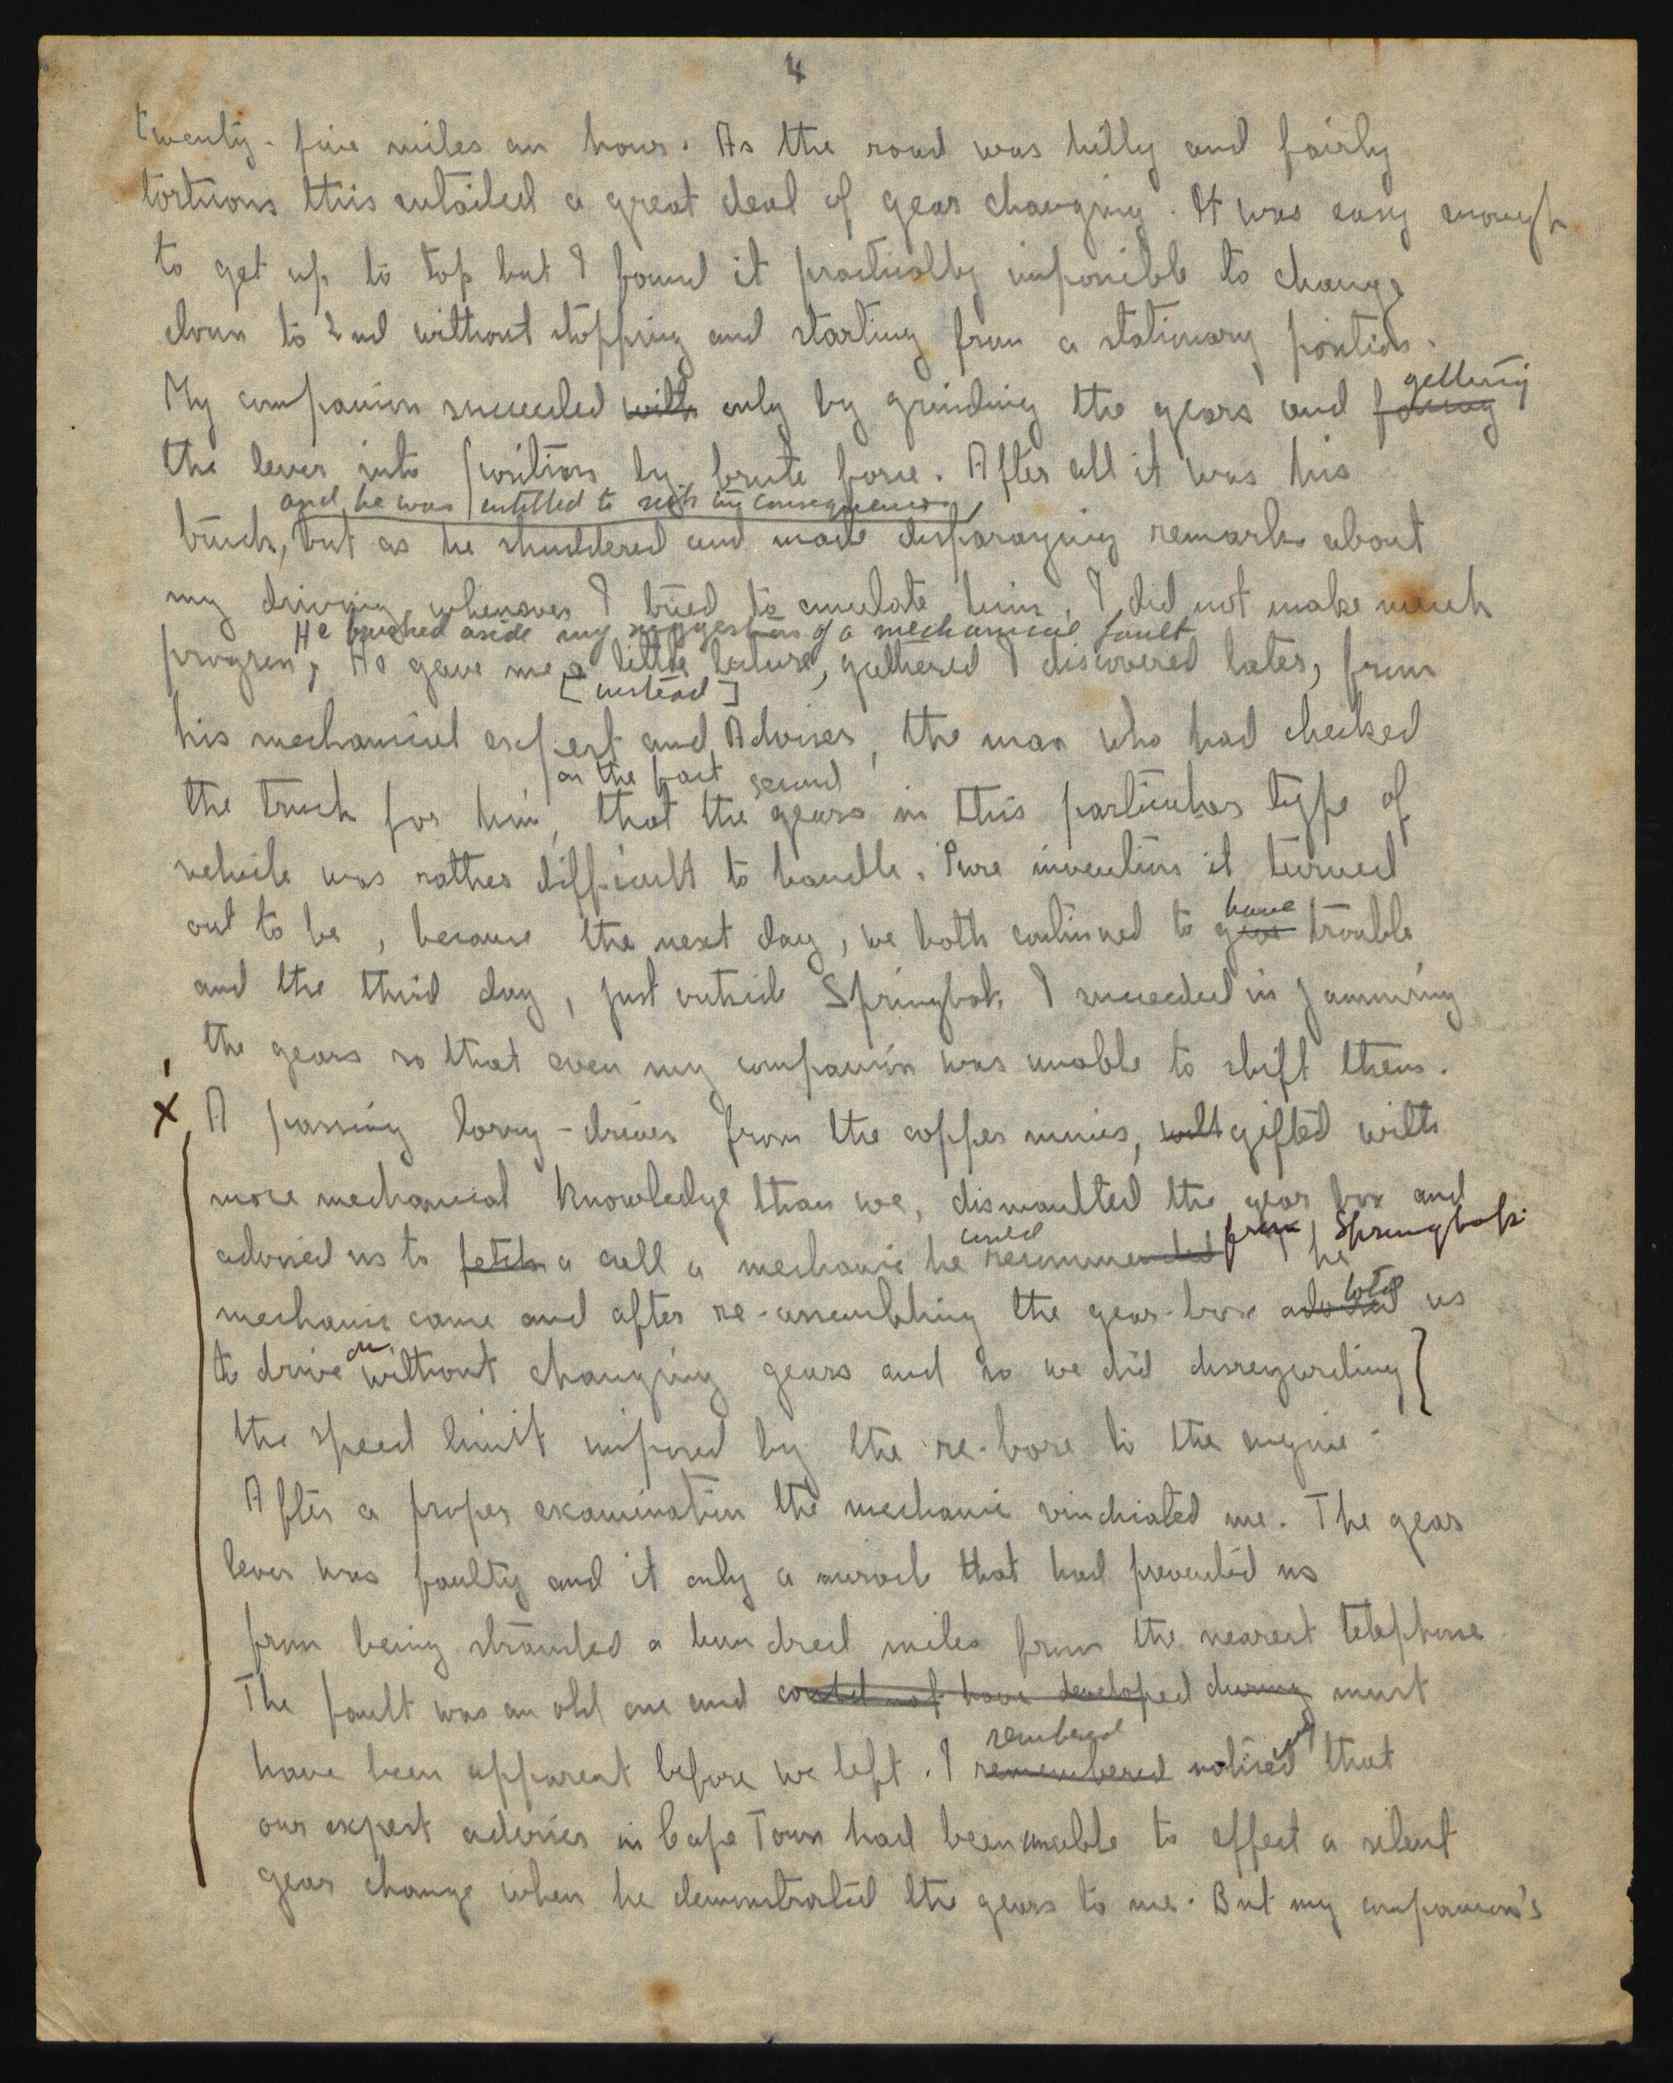 4
twenty-five miles an hour. As the road was hilly and fairly
tortuous this entailed a great deal of gear changing. It was easy enough
to get up to top but I found it practically impossible to change
down to 2nd without stopping and starting from a stationary position.
getting
My companion succeeded with only by grinding the gears and forcing
the lever into position by brute force. After all it was his
and he was entitled to risk the consequences
truck, but as he shuddered and made disparaging remarks about
my driving whenever I tried to emulate him, I did not make much
He brushed aside my suggestion of a mechanical fault
progress, He gave me a little lecture, gathered I discovered later, from
[instead]
his mechanical expert and Adviser, the man who had checked
on the fact second
the truck for him, that the gears in this particular type of
vehicle was rather difficult to handle. Pure invention it turned
have
out to be, because the next day, we both continued to gear trouble
and the third day, just outside Springbok I succeeded in jamming
the gears so that even my companion was unable to shift them.
x A passing lorry-driver from the copper mines, with gifted with
more mechanical knowledge than we, dismantled the gear box and
used from Springbok.
advised us to fetch a call a mechanic he recommended The
told
mechanic came and after re-assembling the gear-box advised us
on
to drive without changing gears and so we did disregarding ]
the speed limit imposed by the re-bore to the engine.
After a proper examination the mechanic vindicated me. The gear
lever was faulty and it only a miracle that had prevented us
from being stranded a hundred miles from the nearest telephone.
The fault was an old one and could not have developed during must
have been apparent before we left. I remembered noticed that
our expert adviser in Cape Town had been unable to effect a silent
gear change when he demonstrated the gears to me. But my companion's